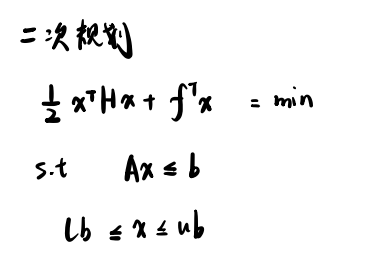 二次规划
½ xᵀHx + fᵀx = min
s.t Ax ≤ b
lb ≤ x ≤ ub